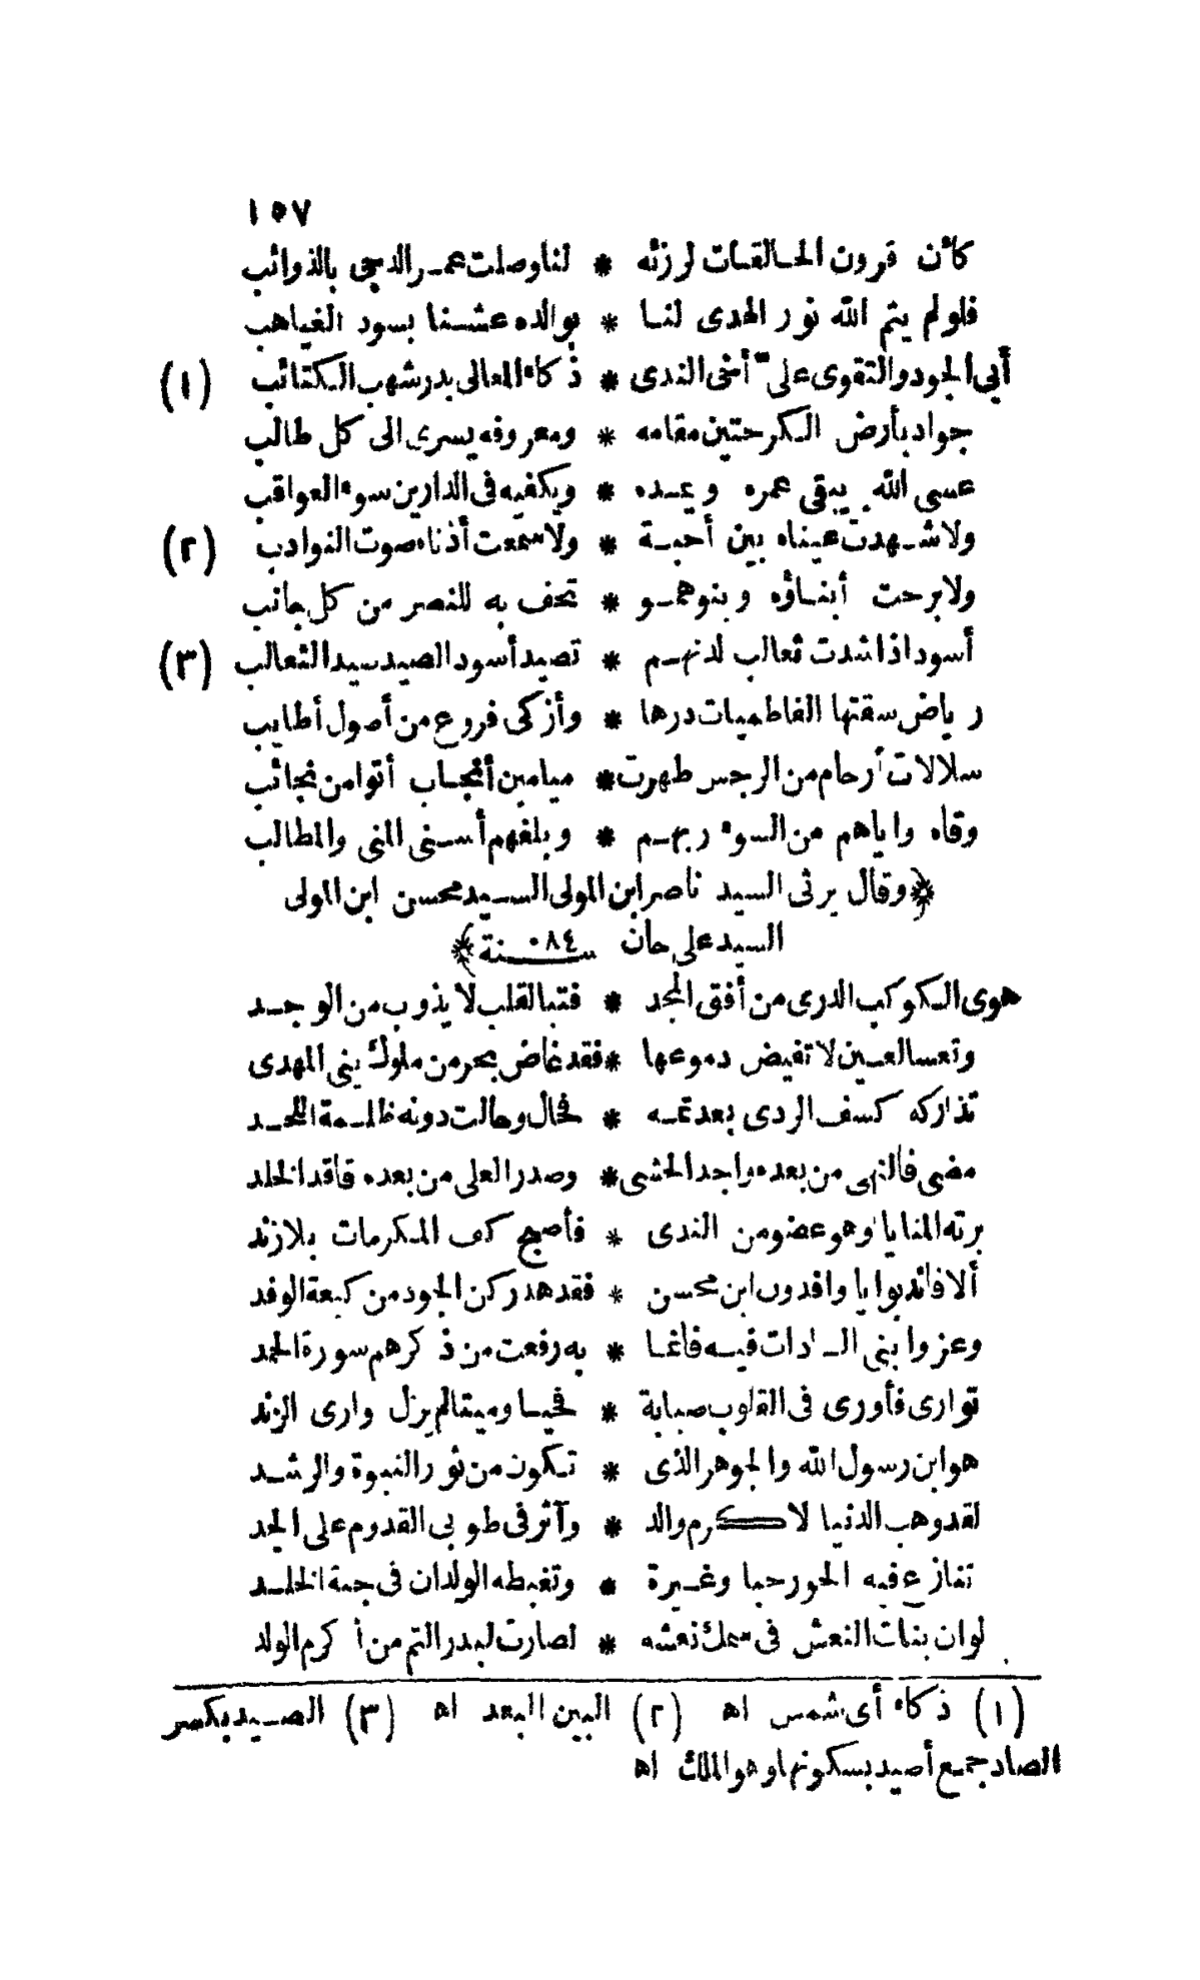 ١٥٧
كأن قرون الحالقات لرزئه * لنا وصلت عمر الدجى بالذوائب
فلو لم يتم الله نور الهدى لنا * بوالده عشنا بسود الغياهب
أبى الجود والتقوى على أخى الندى * ذكاء المعالى بدر شهب الكتائب (١)
جواد بأرض الكرختين مقامه * ومعروفه يسرى الى كل طالب
عسى الله يبقى عمره ويمده * ويكفيه فى الدارين سوء العواقب
ولا شهدت عيناه بين أحبة * ولا سمعت أذناه صوت النوادب (٢)
ولا برحت أبناؤه وبنوهمو * تحف به للنصر من كل جانب
أسود اذا شدت ثعالب لدنهم * تصيد أسود الصيد سيد الثعالب (٣)
رياض سقتها الفاطميات درها * وأزكى فروع من أصول أطايب
سلالات أرحام من الرجس طهرت * ميامين أنجاب أتوا من نجائب
وقاه واياهم من السوء ربهم * وبلغهم أسنى المنى والمطالب
﴿وقال يرثى السيد ناصر ابن المولى السيد محسن ابن المولى
السيد على خان سنة ٠٨٤﴾
هوى الكوكب الدرى من أفق المجد * فتبا لقلب لا يذوب من الوجد
وتعسا لعين لا تفيض دموعها * فقد غاض بحر من ملوك بنى المهدى
تداركه كسف الردى بعد تمه * فحال وحالت دونه ظلمة اللحد
مضى فالنهى من بعده واجد الحشى * وصدر العلى من بعده فاقد الخلد
برته المنايا وهو عضو من الندى * فأصبح كف المكرمات بلا زند
ألا فاندبوا يا وافدون ابن محسن * فقد هد ركن الجود من كعبة الوفد
وعزوا بنى السادات فيه فانما * به رفعت من ذكرهم سورة الحمد
توارى فأورى فى القلوب صبابة * فحيا وميتا لم يزل وارى الزند
هو ابن رسول الله والجوهر الذى * تكون من نور النبوة والرشد
لقد وهب الدنيا لاكرم والد * وآثر فى طوبى القدوم على الجد
تنازع فيه الحور حبا وغيرة * وتغبطه الولدان فى جنة الخلد
لو ان بنات النعش فى سمك نعشه * لصارت لبدر التم من أكرم الولد
(١) ذكاء أى شمس اه (٢) البين البعد اه (٣) الصيد بكسر
الصاد جمع أصيد بسكونها وهو الملك اه